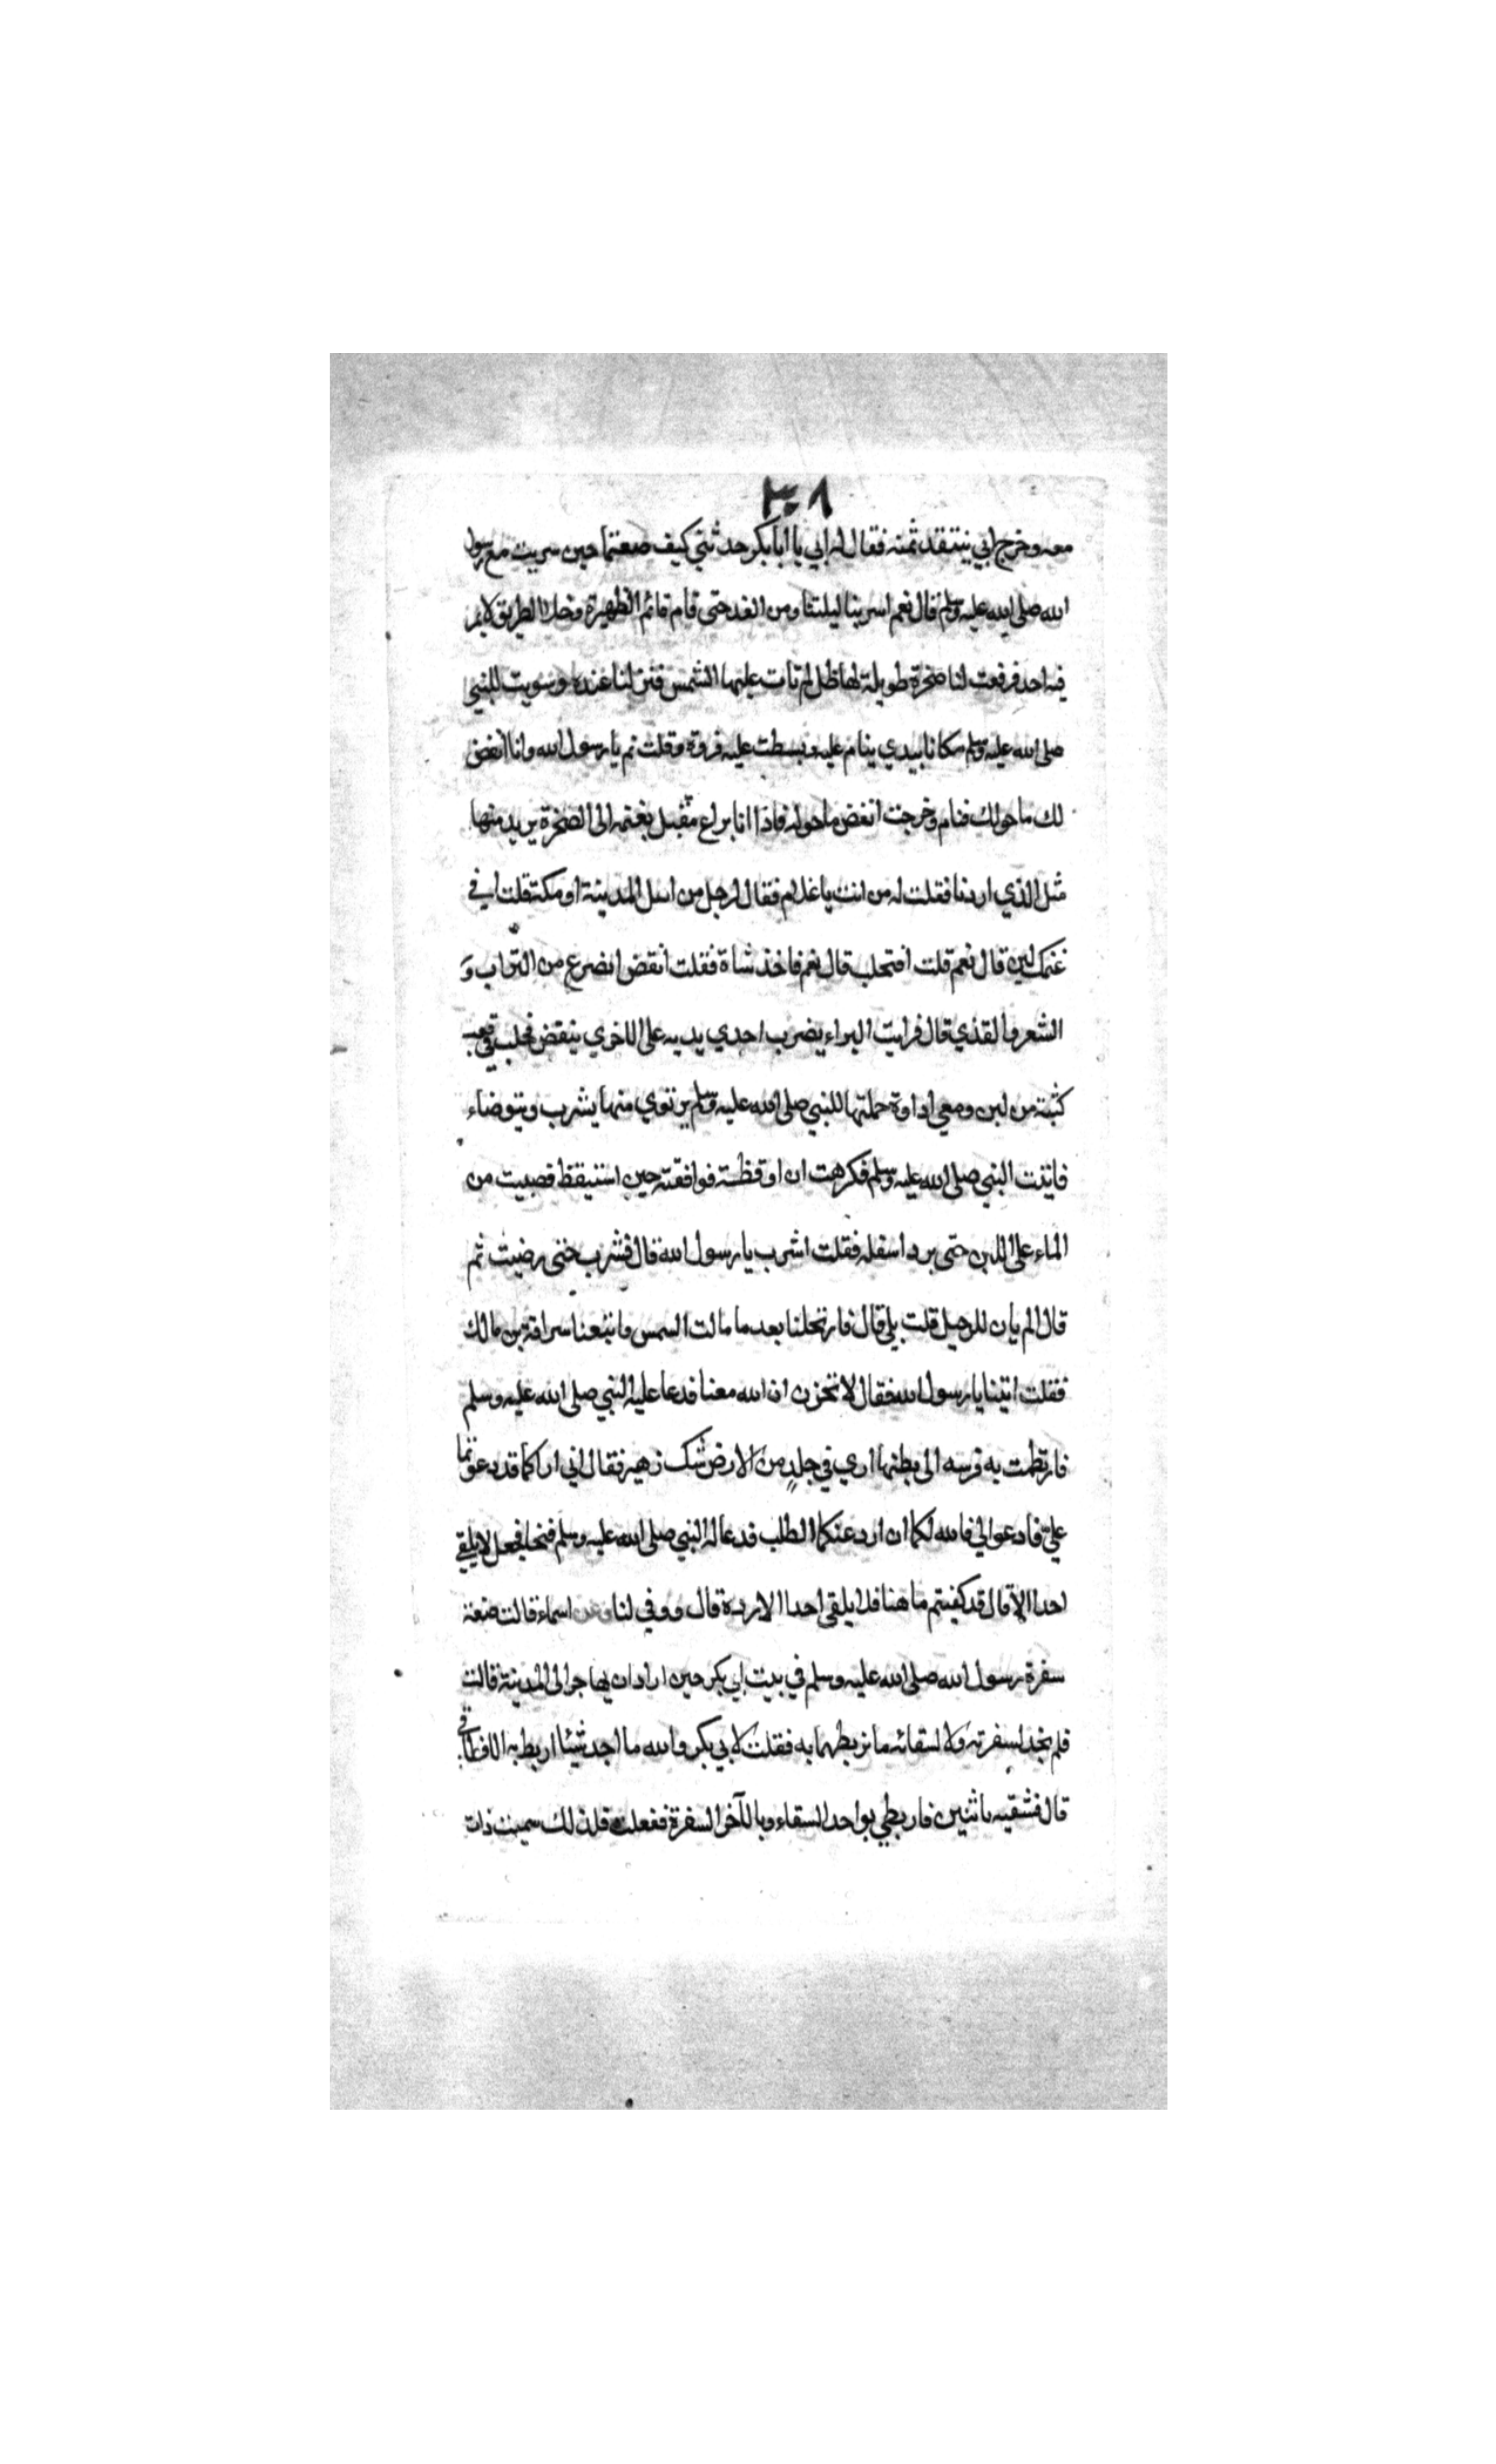 ٣٠٨
معه وخرج ابي ينتقد ثمنه فقال له ابي يا ابا بكر حدثني كيف صنعتما حين سريت مع رسول
الله صلى الله عليه وسلم قال نعم اسرينا ليلتنا ومن الغد حتى قام قائم الظهيرة وخلا الطريق لا يمر
فيه احد فرفعت لنا صخرة طويلة لها ظل لم تات عليها الشمس فنزلنا عنده وسويت للنبي
صلى الله عليه وسلم مكانا بيدي ينام عليه وبسطت عليه فروة وقلت نم يا رسول الله وانا انفض
لك ما حولك فنام وخرجت انفض ما حوله فاذا انا براع مقبل بغنمه الى الصخرة يريد منها
مثل الذي اردنا فقلت له من انت يا غلام فقال لرجل من اهل المدينة او مكة قلت افي
غنمك لبن قال نعم قلت افتحلب قال نعم فاخذ شاة فقلت انفض الضرع من التراب و
الشعر والقذي قال فرايت البراء يضرب احدي يديه على الاخري ينفض فحلب في قعب
كثبة من لبن ومعي اداوة حملتها للنبي صلى الله عليه وسلم يرتوي منها يشرب ويتوضاء
فاتيت النبي صلى الله عليه وسلم فكرهت ان اوقظه فوافقته حين استيقظ فصببت من
الماء على اللبن حتى برد اسفله فقلت اشرب يا رسول الله قال فشرب حتى رضيت ثم
قال الم يان للرحيل قلت بلي قال فارتحلنا بعد ما مالت الشمس واتبعنا سراقة بن مالك
فقلت اتينا يا رسول الله فقال لا تحزن ان الله معنا فدعا عليه النبي صلى الله عليه وسلم
فارتطمت به فرسه الى بطنها اري في جلد من الارض شك زهير فقال اني اراكما قد دعوتما
علي فادعوا لي فالله لكما ان ارد عنكما الطلب فدعا له النبي صلى الله عليه وسلم فنجا فجعل لا يلقي
احدا الا قال قد كفيتم ما هنا فلا يلقى احدا الا رده قال ووفى لنا وعن اسماء قالت صنعت
سفرة رسول الله صلى الله عليه وسلم في بيت ابي بكر حين اراد ان يهاجر الى المدينة قالت
فلم نجد لسفرته ولا لسقائه ما نربطهما به فقلت لابي بكر والله ما اجد شيئا اربط به الا نطاقي
قال فشقيه باثنين فاربطي بواحد السقاء وبالآخر السفرة ففعلت فلذلك سميت ذات